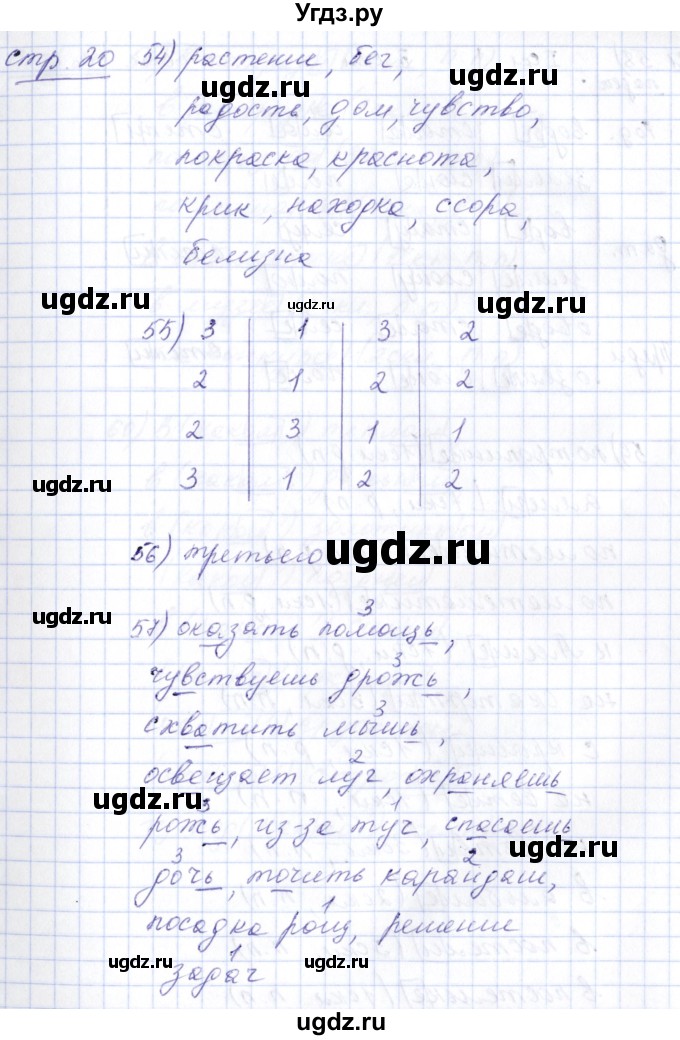 Угдз.ру
стр. 20 54) растение, бег,
ugdz.ru
радость, дом, чувство,
покраска, краснота,
крик, находка, ссора,
белизна
ugdz.ru ugdz.ru ugdz.ru
55) 3 1 3 2
2 1 2 2
2 3 1 1
ugdz.ru
3 1 2 2
56) третьего
ugdz.ru
ugdz.ru
3
57) оказать помощь,
3
чувствуешь дрожь,
3
схватить мышь,
2
освещает луг, охраняешь
ugdz.ru
3 1
рожь, из-за туч, спасаешь
ugdz.ru
3 2
дочь, точить карандаш,
1
посадка рощ, решение
1
задач
ugdz.ru ugdz.ru
ugdz.ru